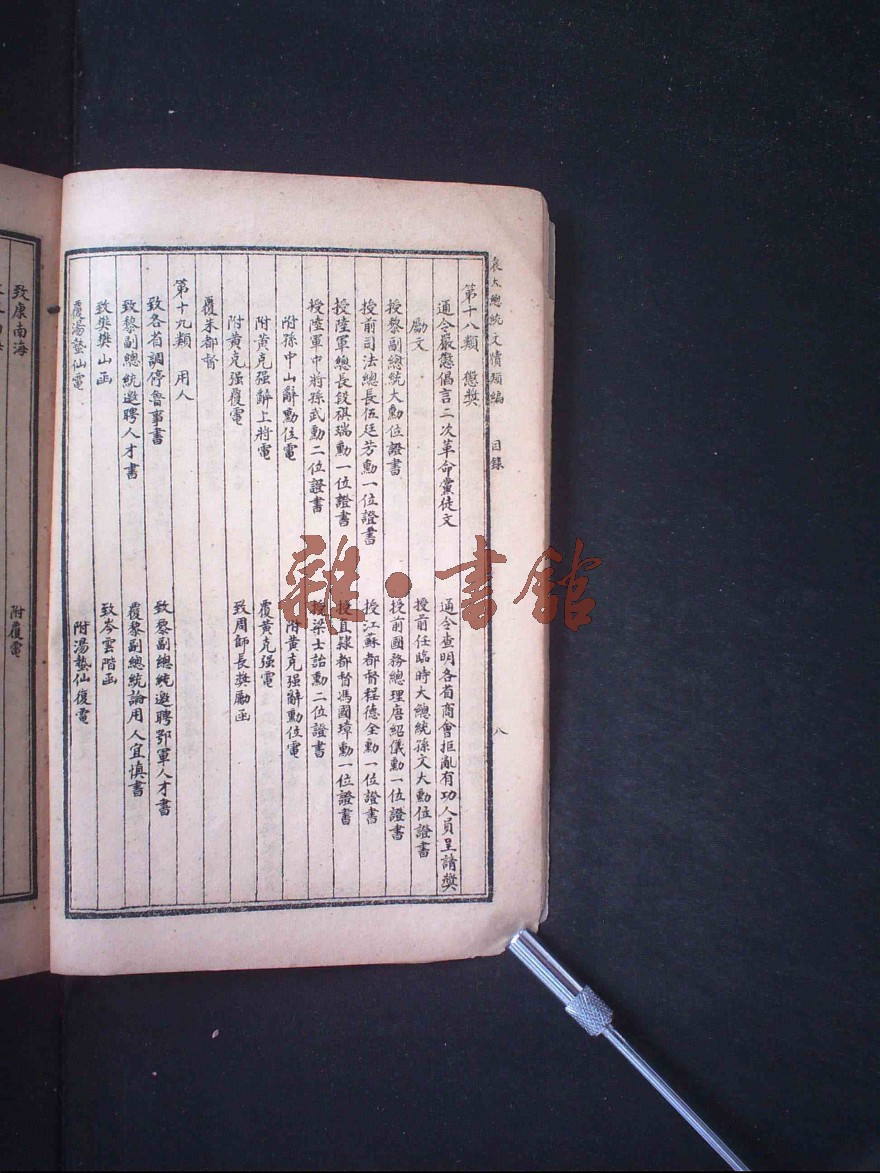 袁大總統文牘類編 目錄 八
第十八類 懲獎
通令嚴懲倡言二次革命黨徒文 通令查明各省商會拒亂有功人員呈請獎
勵文 授前任臨時大總統孫文大勳位證書
授黎副總統大勳位證書 授前國務總理唐紹儀勳一位證書
授前司法總長伍廷芳勳一位證書 授江蘇都督程德全勳一位證書
授陸軍總長段祺瑞勳一位證書 授直隸都督馮國璋勳一位證書
授陸軍中將孫武勳二位證書 授梁士詒勳二位證書
附孫中山辭勳位電 附黃克强辭勳位電
附黃克强辭上將電 覆黃克强電
附黃克强覆電 致周師長獎勵函
覆朱都督
第十九類 用人
致各省調停魯事書 致黎副總統邀聘鄂軍人才書
致黎副總統邀聘人才書 覆黎副總統論用人宜慎書
致樊樊山函 致岑雲階函
覆湯蟄仙電 附湯蟄仙復電
致康南海 附覆電
雜·書館